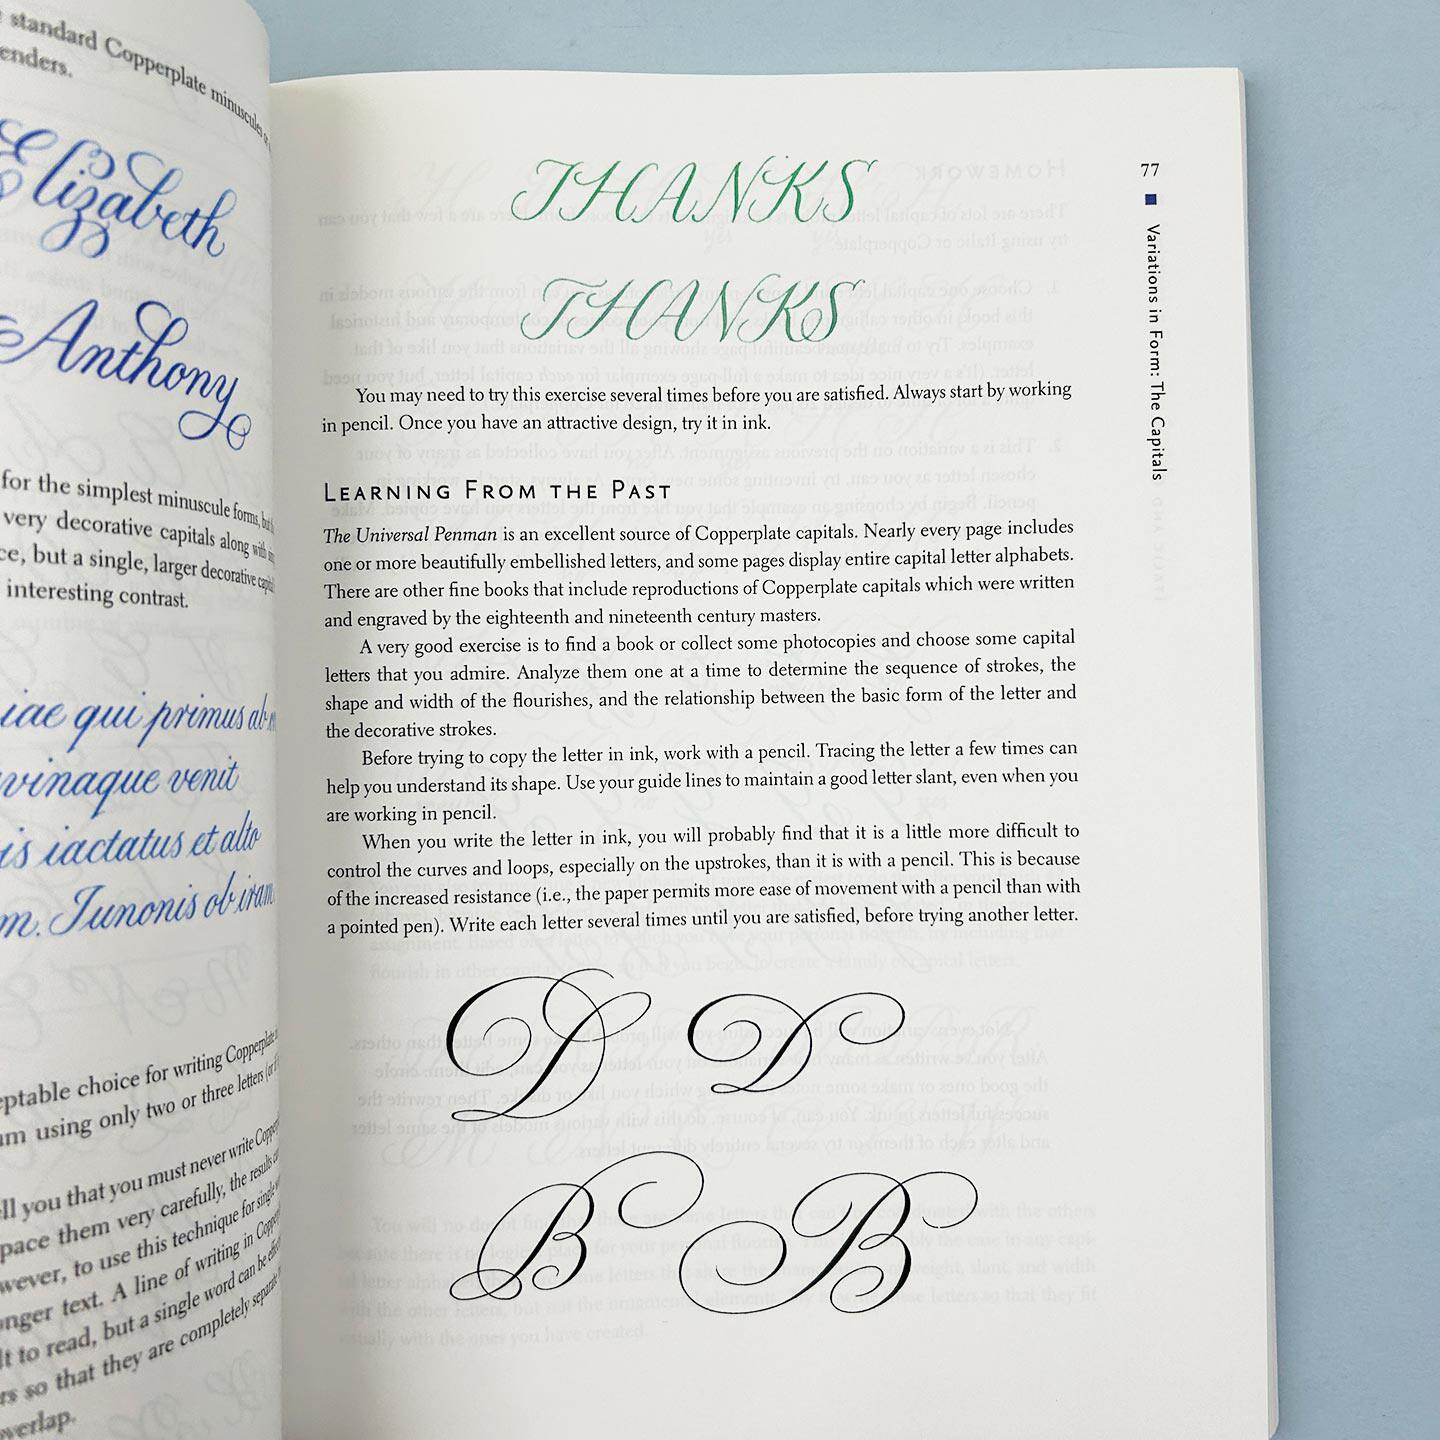 standard Copperplate minuscules
enders.
Elizabeth
Anthony
for the simplest minuscule forms,
very decorative capitals along with
ce, but a single, larger decorative
interesting contrast.
iae qui primus ab
vinaque venit
is iactatus et alto
m. Junonis ob iram
eptable choice for writing Copperplate
am using only two or three letters
ell you that you must never write
pace them very carefully, the results
wever, to use this technique for single
onger text. A line of writing in
lt to read, but a single word can be
rs so that they are completely separate
overlap.
THANKS
THANKS
You may need to try this exercise several times before you are satisfied. Always start by working
in pencil. Once you have an attractive design, try it in ink.
LEARNING FROM THE PAST
The Universal Penman is an excellent source of Copperplate capitals. Nearly every page includes
one or more beautifully embellished letters, and some pages display entire capital letter alphabets.
There are other fine books that include reproductions of Copperplate capitals which were written
and engraved by the eighteenth and nineteenth century masters.
A very good exercise is to find a book or collect some photocopies and choose some capital
letters that you admire. Analyze them one at a time to determine the sequence of strokes, the
shape and width of the flourishes, and the relationship between the basic form of the letter and
the decorative strokes.
Before trying to copy the letter in ink, work with a pencil. Tracing the letter a few times can
help you understand its shape. Use your guide lines to maintain a good letter slant, even when you
are working in pencil.
When you write the letter in ink, you will probably find that it is a little more difficult to
control the curves and loops, especially on the upstrokes, than it is with a pencil. This is because
of the increased resistance (i.e., the paper permits more ease of movement with a pencil than with
a pointed pen). Write each letter several times until you are satisfied, before trying another letter.
D D
B B
77
Variations in Form: The Capitals